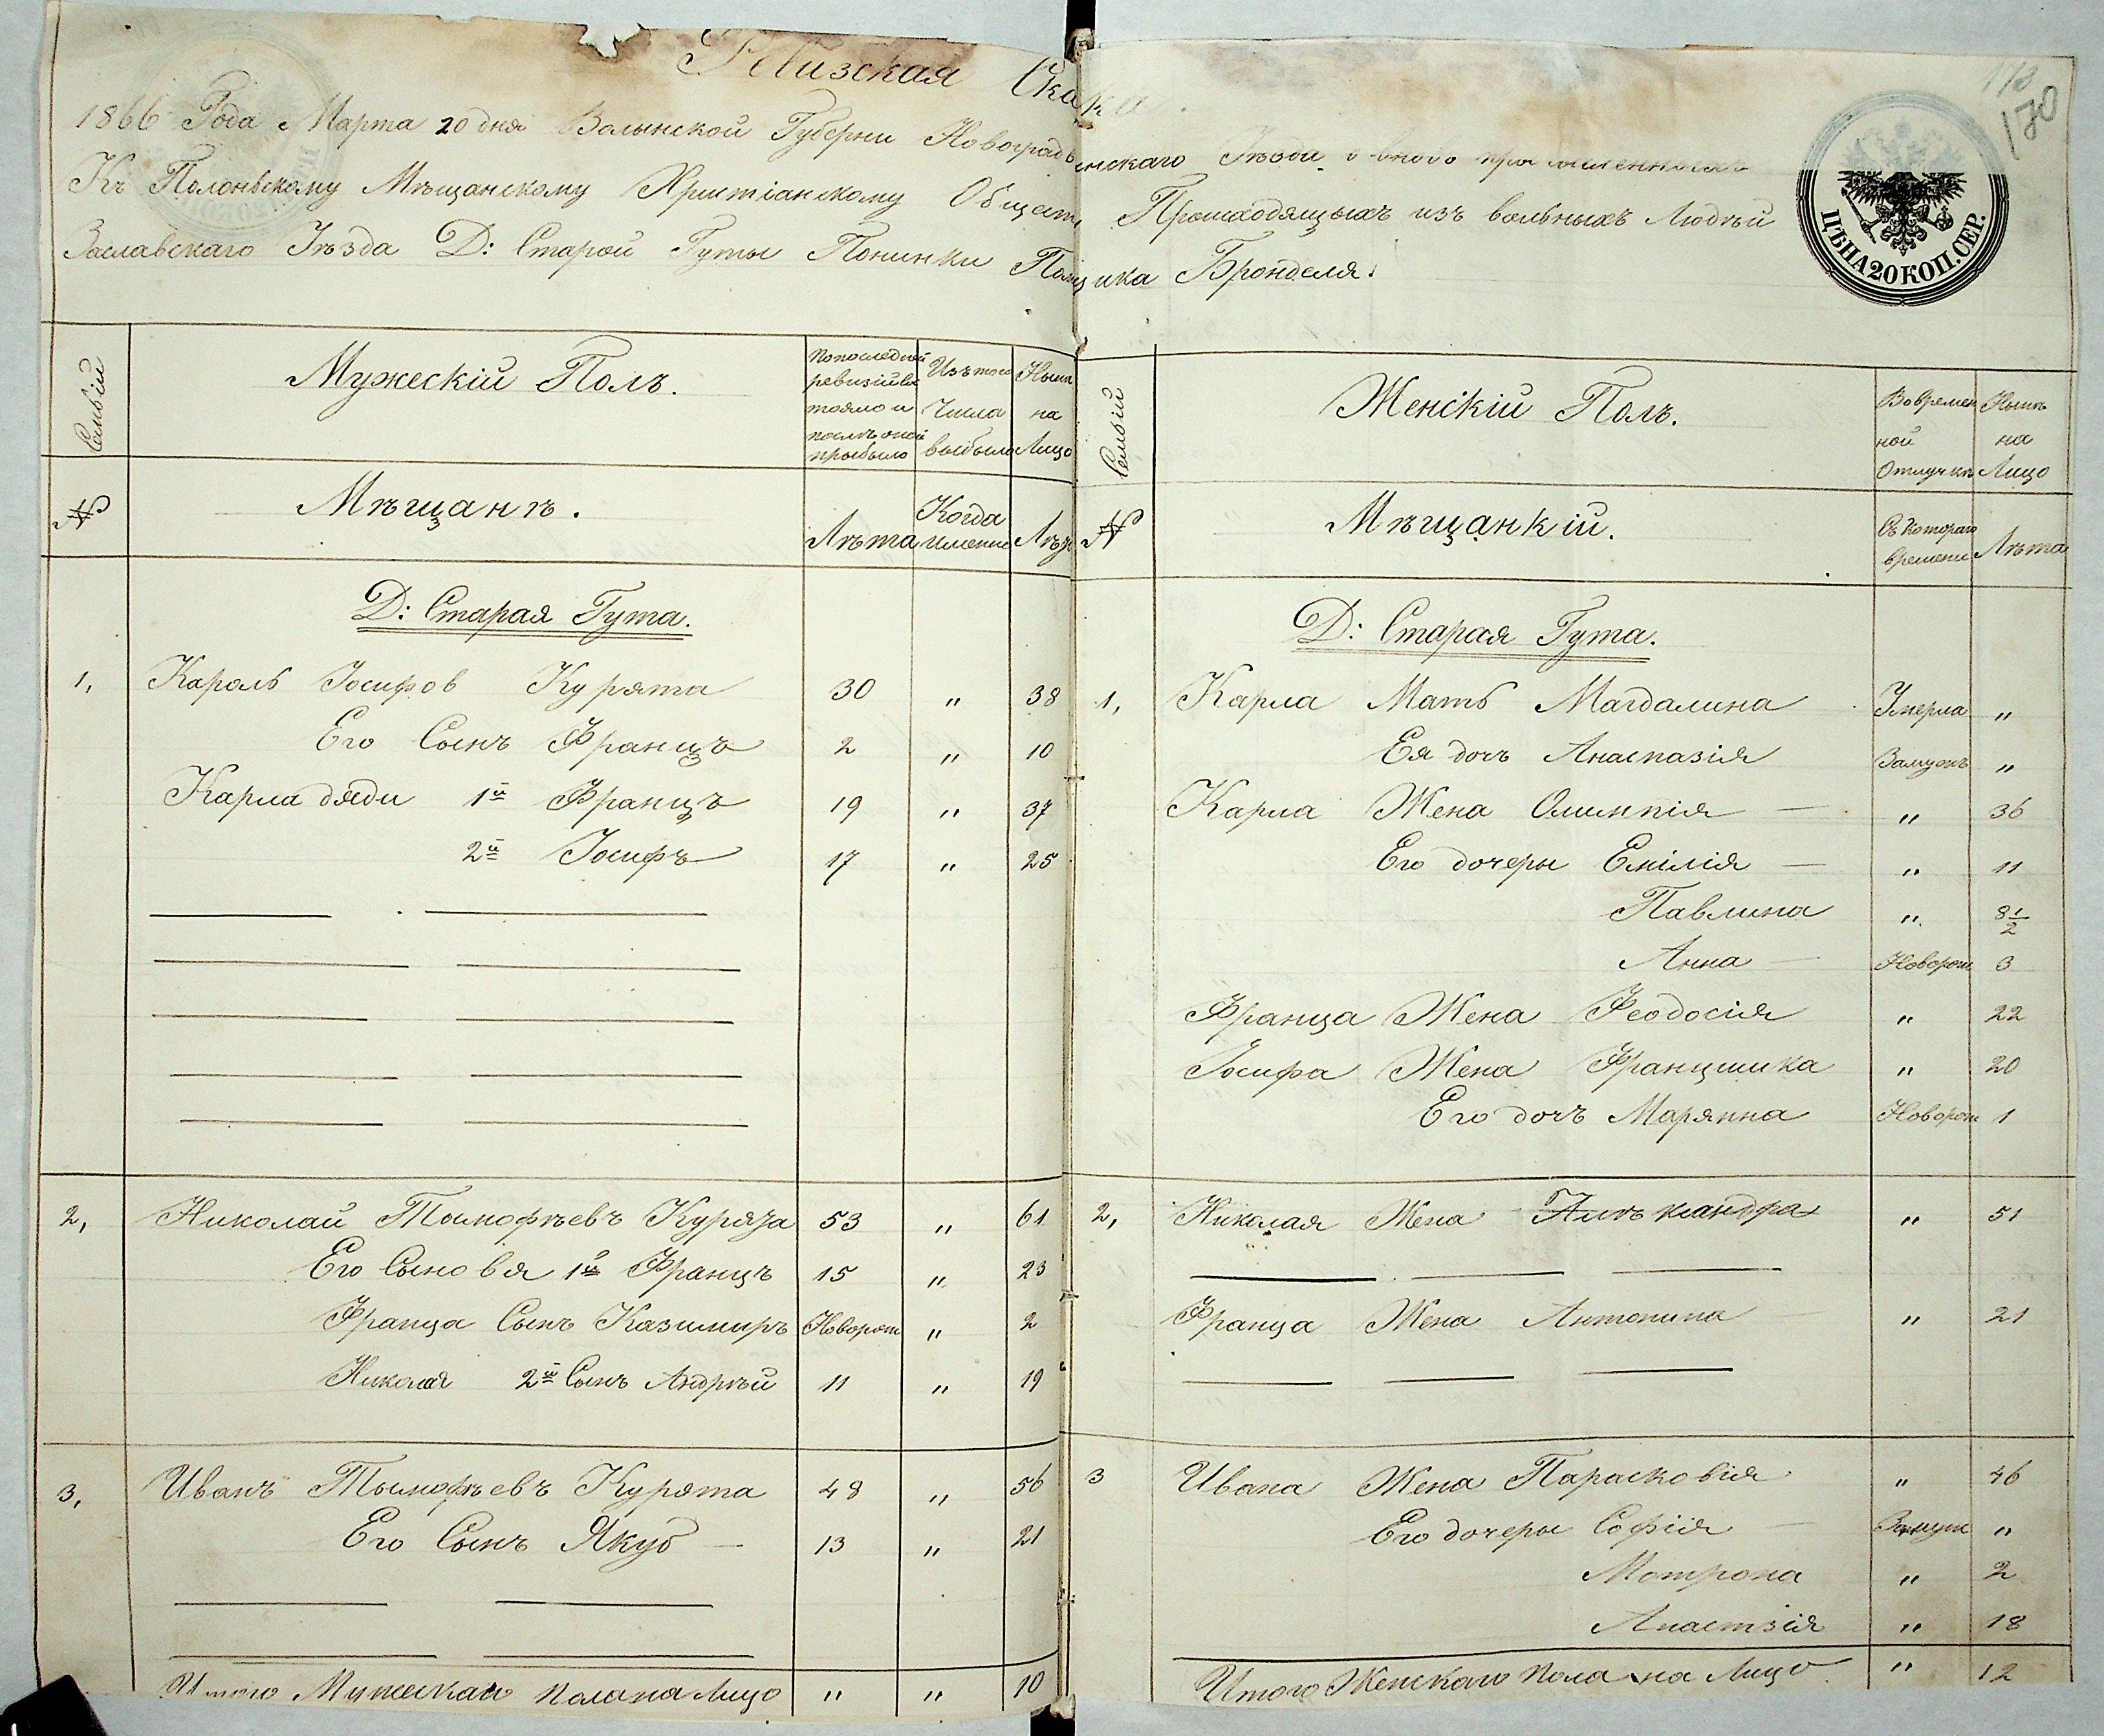 Ревизская Ска
1866 Года Марта 20 дня Волынской Губерни Новоградъ
Къ Полоньскому Мѣщанскому Христіанскому Общест
Заславскаго Уѣзда Д: Старой Гуты Понинки Пом
Семьій
Мужескій Полъ.
По последней ревизіи состояло и послѣ оной прыбыло
Изъ того Числа выбыло
Нына на Лицо
№
Мѣщанъ.
Лѣта
Когда именно
Лѣт
Д: Старая Гута.
1, Кароль Іосифов Курята 30 " 38
Его Сынъ Францъ 2 " 10
Карла дяди 1й Францъ 19 " 37
2й Іосифъ 17 " 25
2, Николай Тымофѣевъ Куряга 53 " 61
Его Сыновя 1й Францъ 15 " 23
Франца Сынъ Казимиръ Новорож " 2
Николая 2й Сынъ Андрѣй 11 " 19
3, Иванъ Тымофѣевъ Курята 48 " 56
Его Сынъ Якуб 13 " 21
Итого Мужескаго пола на Лицо " " 10
170
ЦѢНА 20 КОП. СЕР.
нскаго Уѣзда
Происходящыхъ изъ вольныхъ Людѣй
щика Бронделя.
Семьій
Женскій Полъ.
Во времен ной Отлучкѣ
Нынѣ на Лицо
№
Мѣщанкій.
Съ котораго времени
Лѣта
Д: Старая Гута.
1, Карла Мать Магдалина Умерла "
Ея дочъ Анастазія Замужъ "
Карла Жена Олимпія " 36
Его дочеры Емілія " 11
Павлина " 8 1/2
Анна Новорож 3
Франца Жена Феодосія " 22
Іосифа Жена Францишка " 20
Его дочъ Марянна Новорож 1
2, Николая Жена Алѣксандра " 51
Франца Жена Антонина " 21
3 Ивана Жена Парасковія " 46
Его дочеры Софія Замуж "
Мотрона " 2
Анастзія " 18
Итого Женскаго пола на Лицо " 12